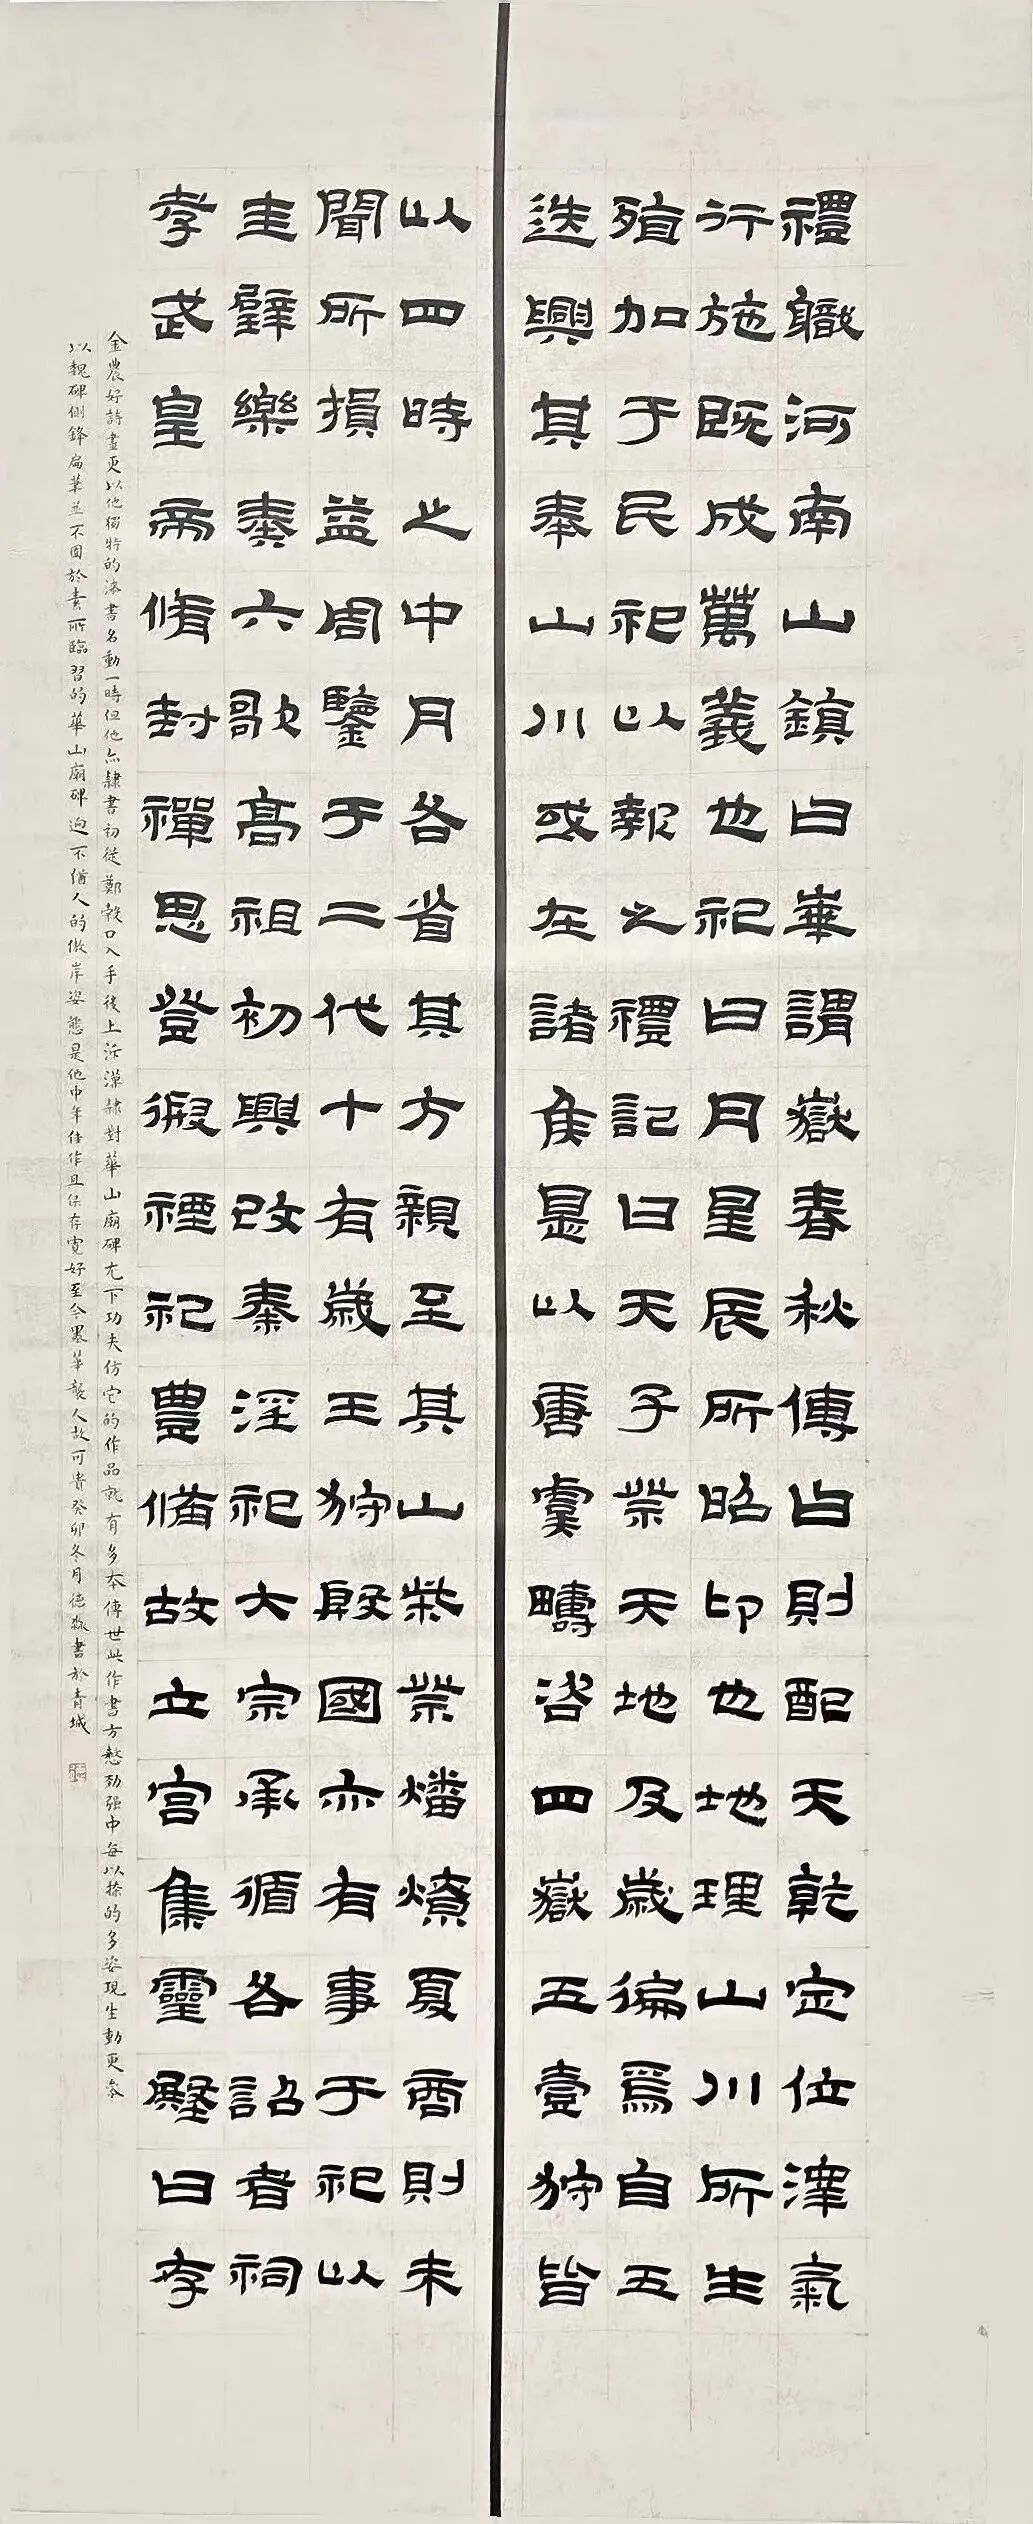 禮職河南山鎮曰崋謂嶽春秋傳曰則配天乾定位澤氣
行施既成萬義也祀曰月星辰所昭卬也地理山川所生
殖加于民祀以報之禮記曰天子祭天地及歲徧焉自五
迭興其奉山川或在諸侯是以唐虞疇咨四嶽五壹狩皆
以四時之中月各省其方親至其山柴祭燔燎夏商則未
聞所損益周鑒于二代十有歲王狩殷國亦有事于祀以
圭璧樂奏六歌高祖初興改秦淫祀大宗承循各詔者祠
孝武皇帝脩封禪思登徦禋祀豐備故立宮集靈殿曰存
金農好詩畫更以他獨特的漆書名動一時但他亦隸書初從鄭穀口入手後上泝漢隸對華山廟碑尤下功夫仿它的作品就有多本傳世此作書方整勁強中每以捺的多姿現生動更參
以魏碑側鋒扁筆並不囿於素所臨習的華山廟碑迥不偕人的傲岸姿態是他中年佳作且保存寛好至今墨華襲人故可貴癸卯冬月德書於青城